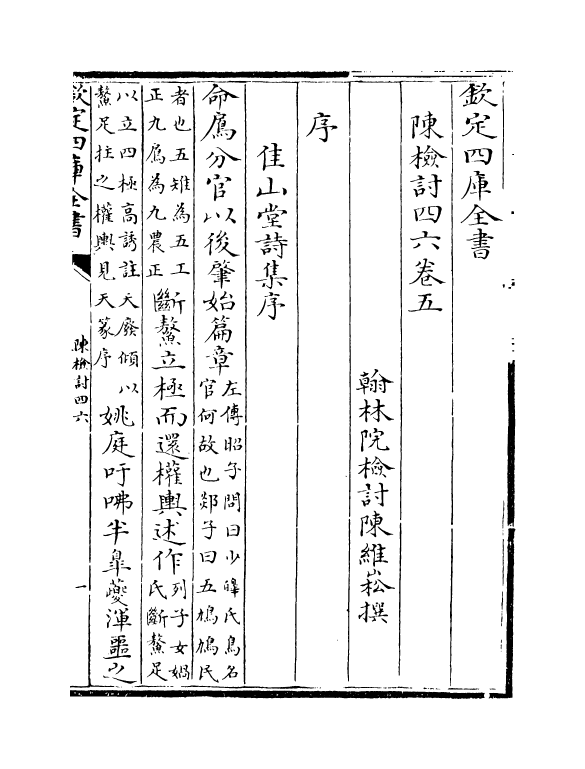 欽定四庫全書
陳檢討四六卷五
翰林院檢討陳維崧撰
序
佳山堂詩集序
命鳸分官以後肇始篇章左傳昭子問曰少皞氏鳥名官何故也郯子曰五鳩鳩民
者也五雉為五工正九鳸為九農正斷鰲立極而還權輿述作列子女媧氏斷鰲足
以立四極高誘註天廢傾以鰲足柱之權輿見天篆序姚庭吁咈半臯夔渾噩之
欽定四庫全書
陳檢討四六
一